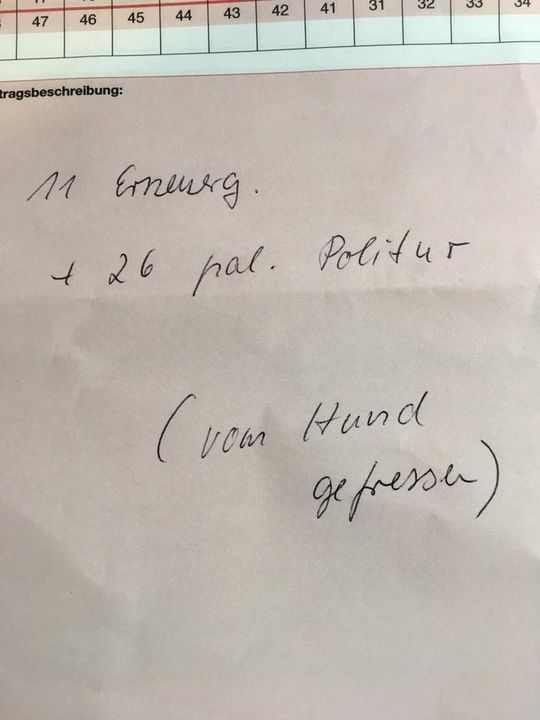 47 46 45 44 43 42 41 31 32 33 34
tragsbeschreibung:
11 Erneuerg.
+ 26 pal. Politur
(vom Hund
gefressen)